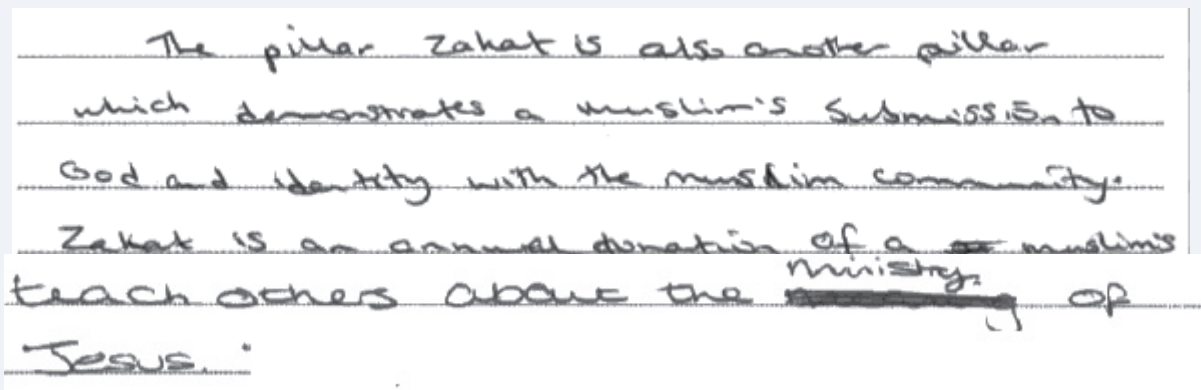 The pillar Zakat is also another pillar
which demonstrates a muslim's submission to
God and identity with the muslim community.
Zakat is an annual donation of a muslim's
teach others about the ministry. of
Jesus.